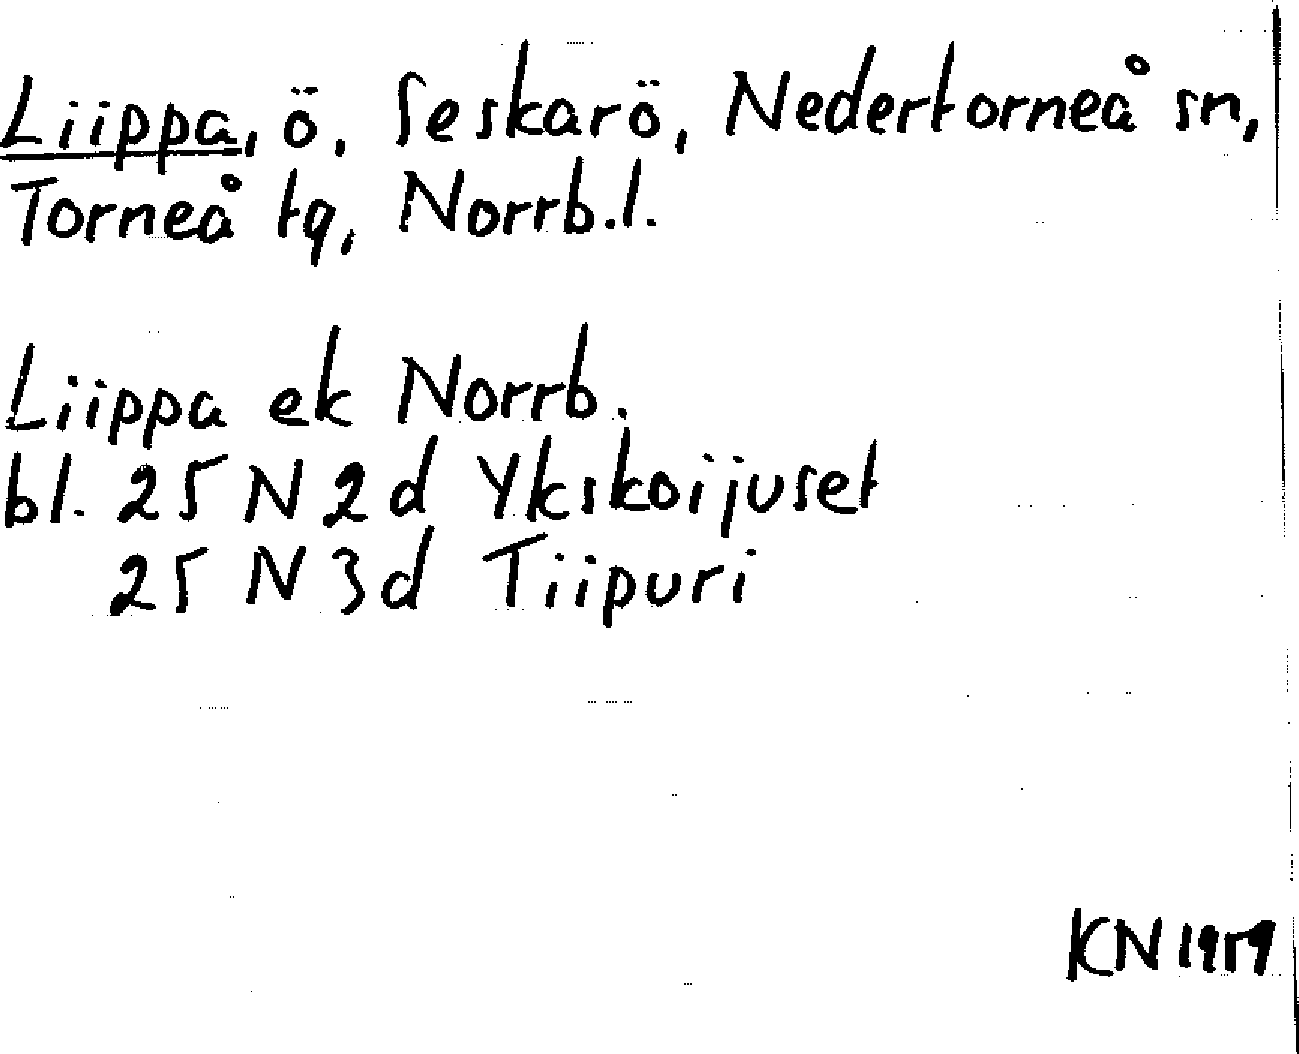 Liippa, ö, Seskarö, Nedertorneå sn,
Torneå tg, Norrb.l.
Liippa ek Norrb.
bl. 25 N 2d Ykskoijuset
25 N 3d Tiipuri
KN 1959